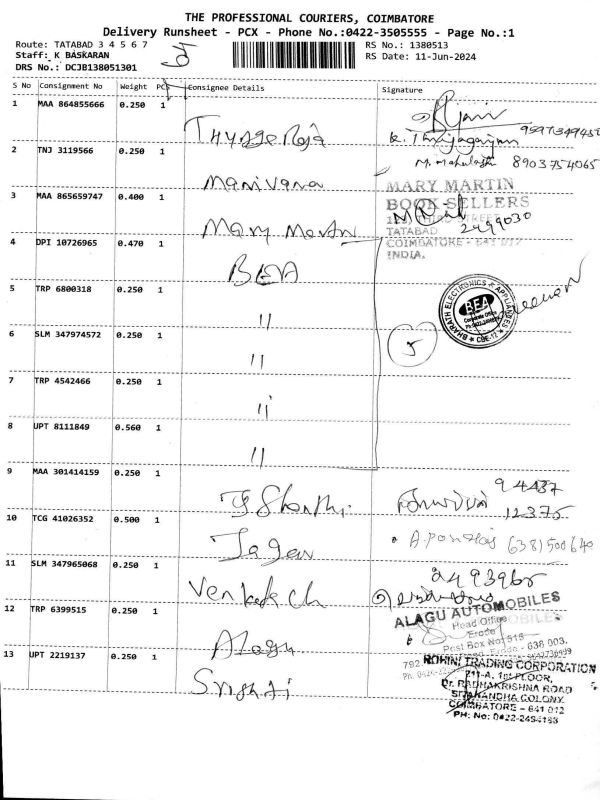 THE PROFESSIONAL COURIERS, COIMBATORE
Delivery Runsheet - PCX - Phone No.:0422-3505555 - Page No.:1
Route: TATABAD 3 4 5 6 7
RS No.: 1380513
Staff: K BASKARAN
RS Date: 11-Jun-2024
DRS No.: DCJB138051301
S No Consignment No Weight PCS Consignee Details Signature
1 MAA 864855666 0.250 1
2 TNJ 3119566 0.250 1 Manivana 8903754065
3 MAA 865659747 0.400 1 Mary Martin
MARY MARTIN
BOOK SELLERS
STREET
2499030
TATABAD
COIMBATORE - 641 012
INDIA.
4 DPI 10726965 0.470 1 BEA
BHARATH ELECTRONICS & APPLIANCES
BEA
CBE-12
5 TRP 6800318 0.250 1 11
5
6 SLM 347974572 0.250 1 11
7 TRP 4542466 0.250 1 11
8 UPT 8111849 0.560 1 11
9 MAA 301414159 0.250 1 94437
12375
10 TCG 41026352 0.500 1 Jagan
11 SLM 347965068 0.250 1 Venkatesh 2493965
12 TRP 6399515 0.250 1 Alagu
ALAGU AUTOMOBILES
Head Office
Erode
Post Box No: 515
Erode - 638 003.
13 UPT 2219137 0.250 1
ROHINI TRADING CORPORATION
211-A, 1st FLOOR,
Dr. RADHAKRISHNA ROAD
SIVANANDHA COLONY
COIMBATORE - 641 012
PH: No: 0422-2494183